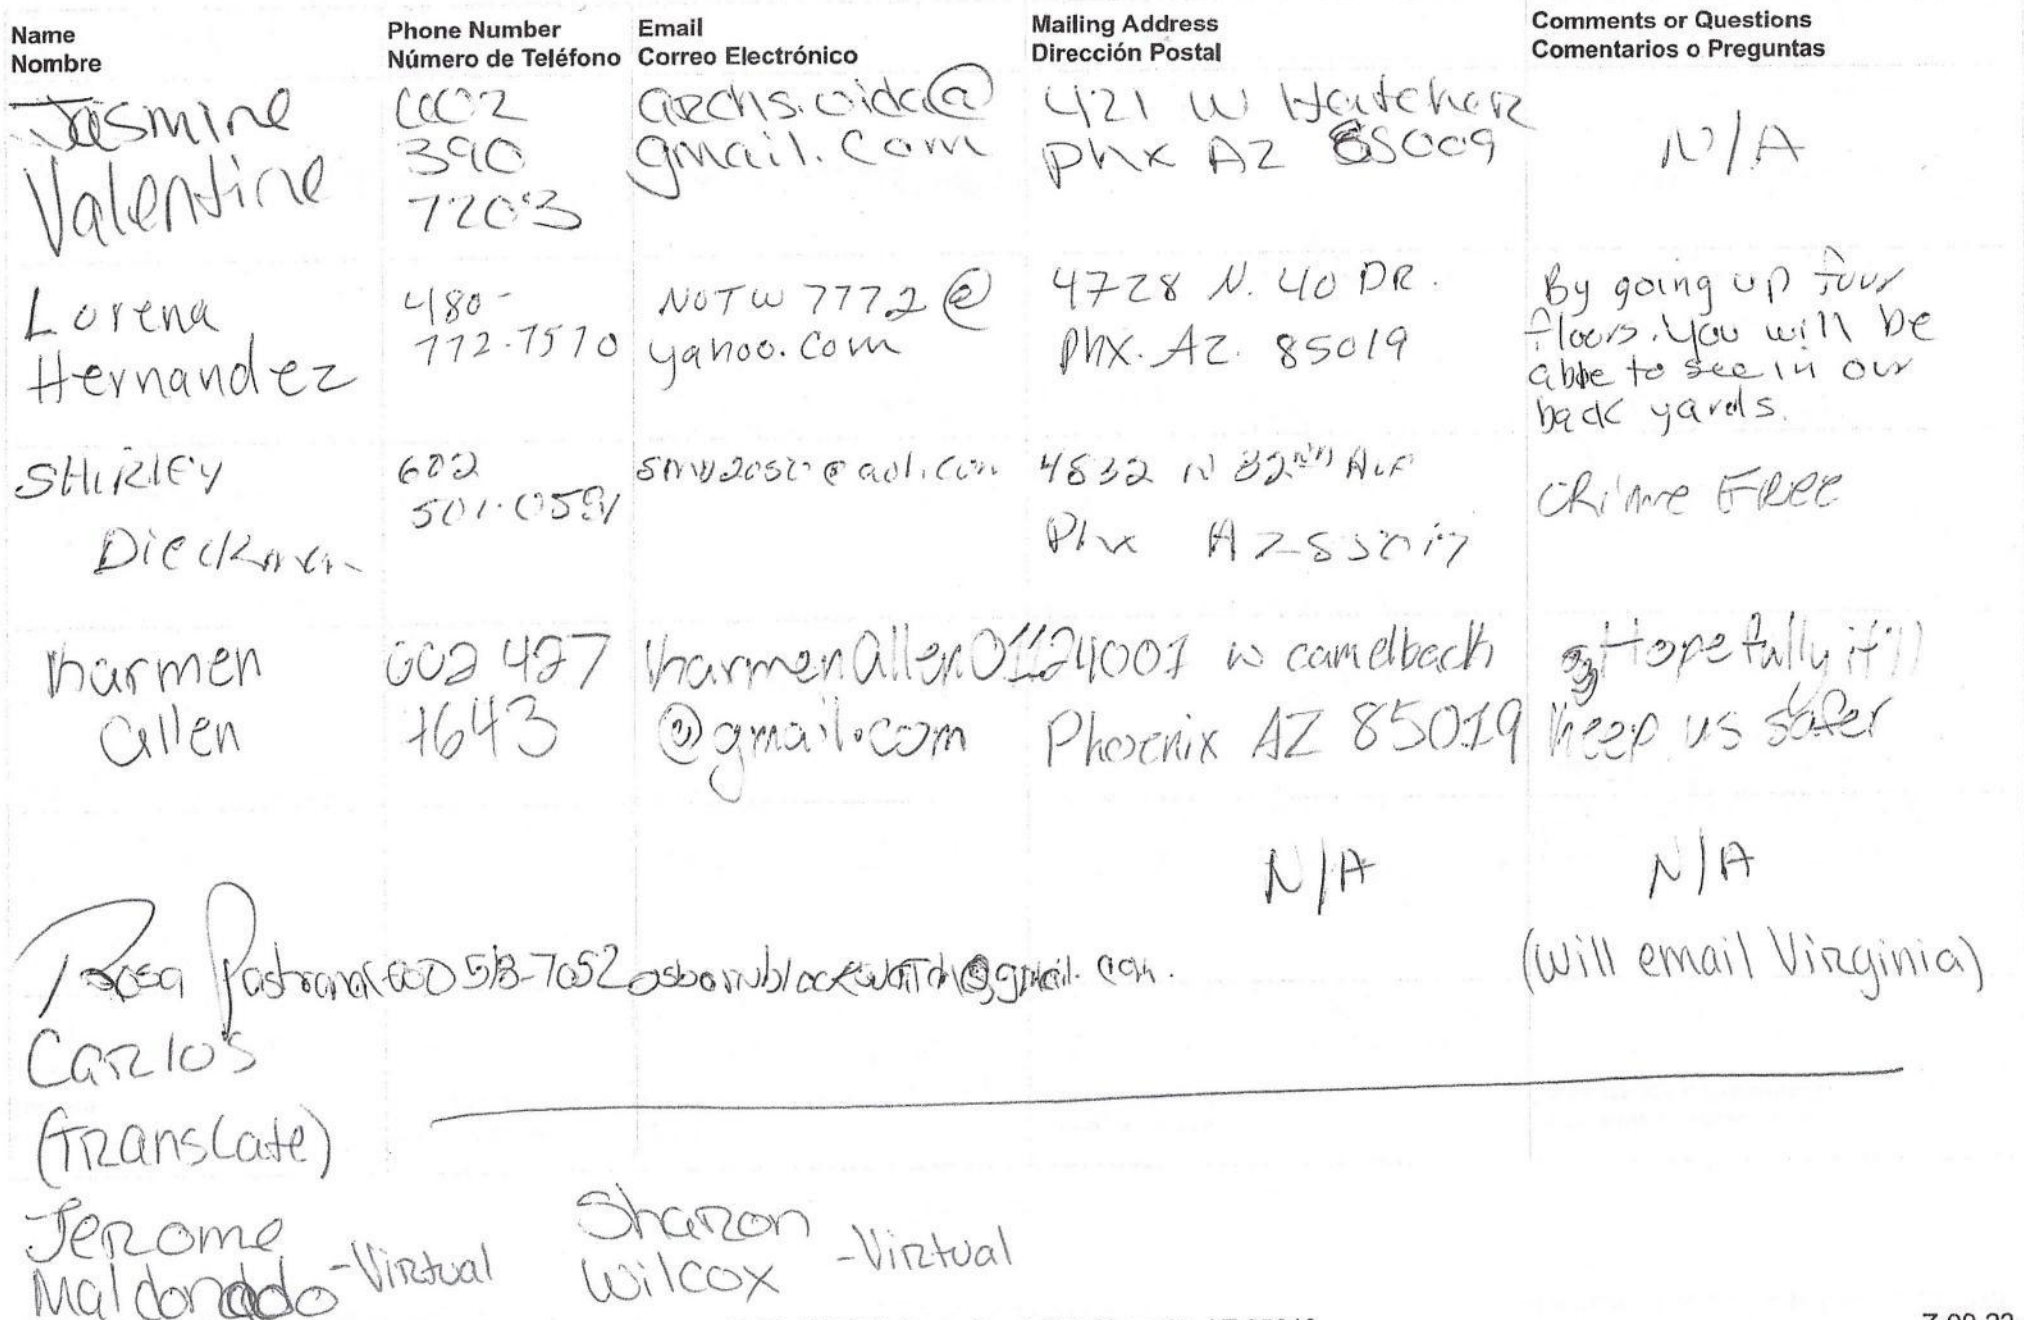 Name
Nombre
Phone Number
Número de Teléfono
Email
Correo Electrónico
Mailing Address
Dirección Postal
Comments or Questions
Comentarios o Preguntas
Jasmine
Valentine
602
390
7203
@
gmail.com
421 W Hatcher
phx AZ 85009
N/A
Lorena
Hernandez
480-
772-7570
NOTW 7772 @
yahoo.com
4728 N. 40 DR.
Phx. AZ. 85019
By going up four
floors. You will be
able to see in our
back yards.
SHIRLEY
Dieckman
602
@aol.com
4832 N 32nd Ave
Phx AZ 85017
CRime FREE
Karmen
allen
602 427
1643
KarmenAllen0112
@gmail.com
4001 w camelback
Phoenix AZ 85019
Hopefully it'll
keep us safer
Rosa Pastrana
osbornblockwatch@gmail.com.
N/A
N/A
(will email Virginia)
Carlos
(Translate)
Jerome
Maldonado
-Virtual
Sharon
Wilcox
-Virtual